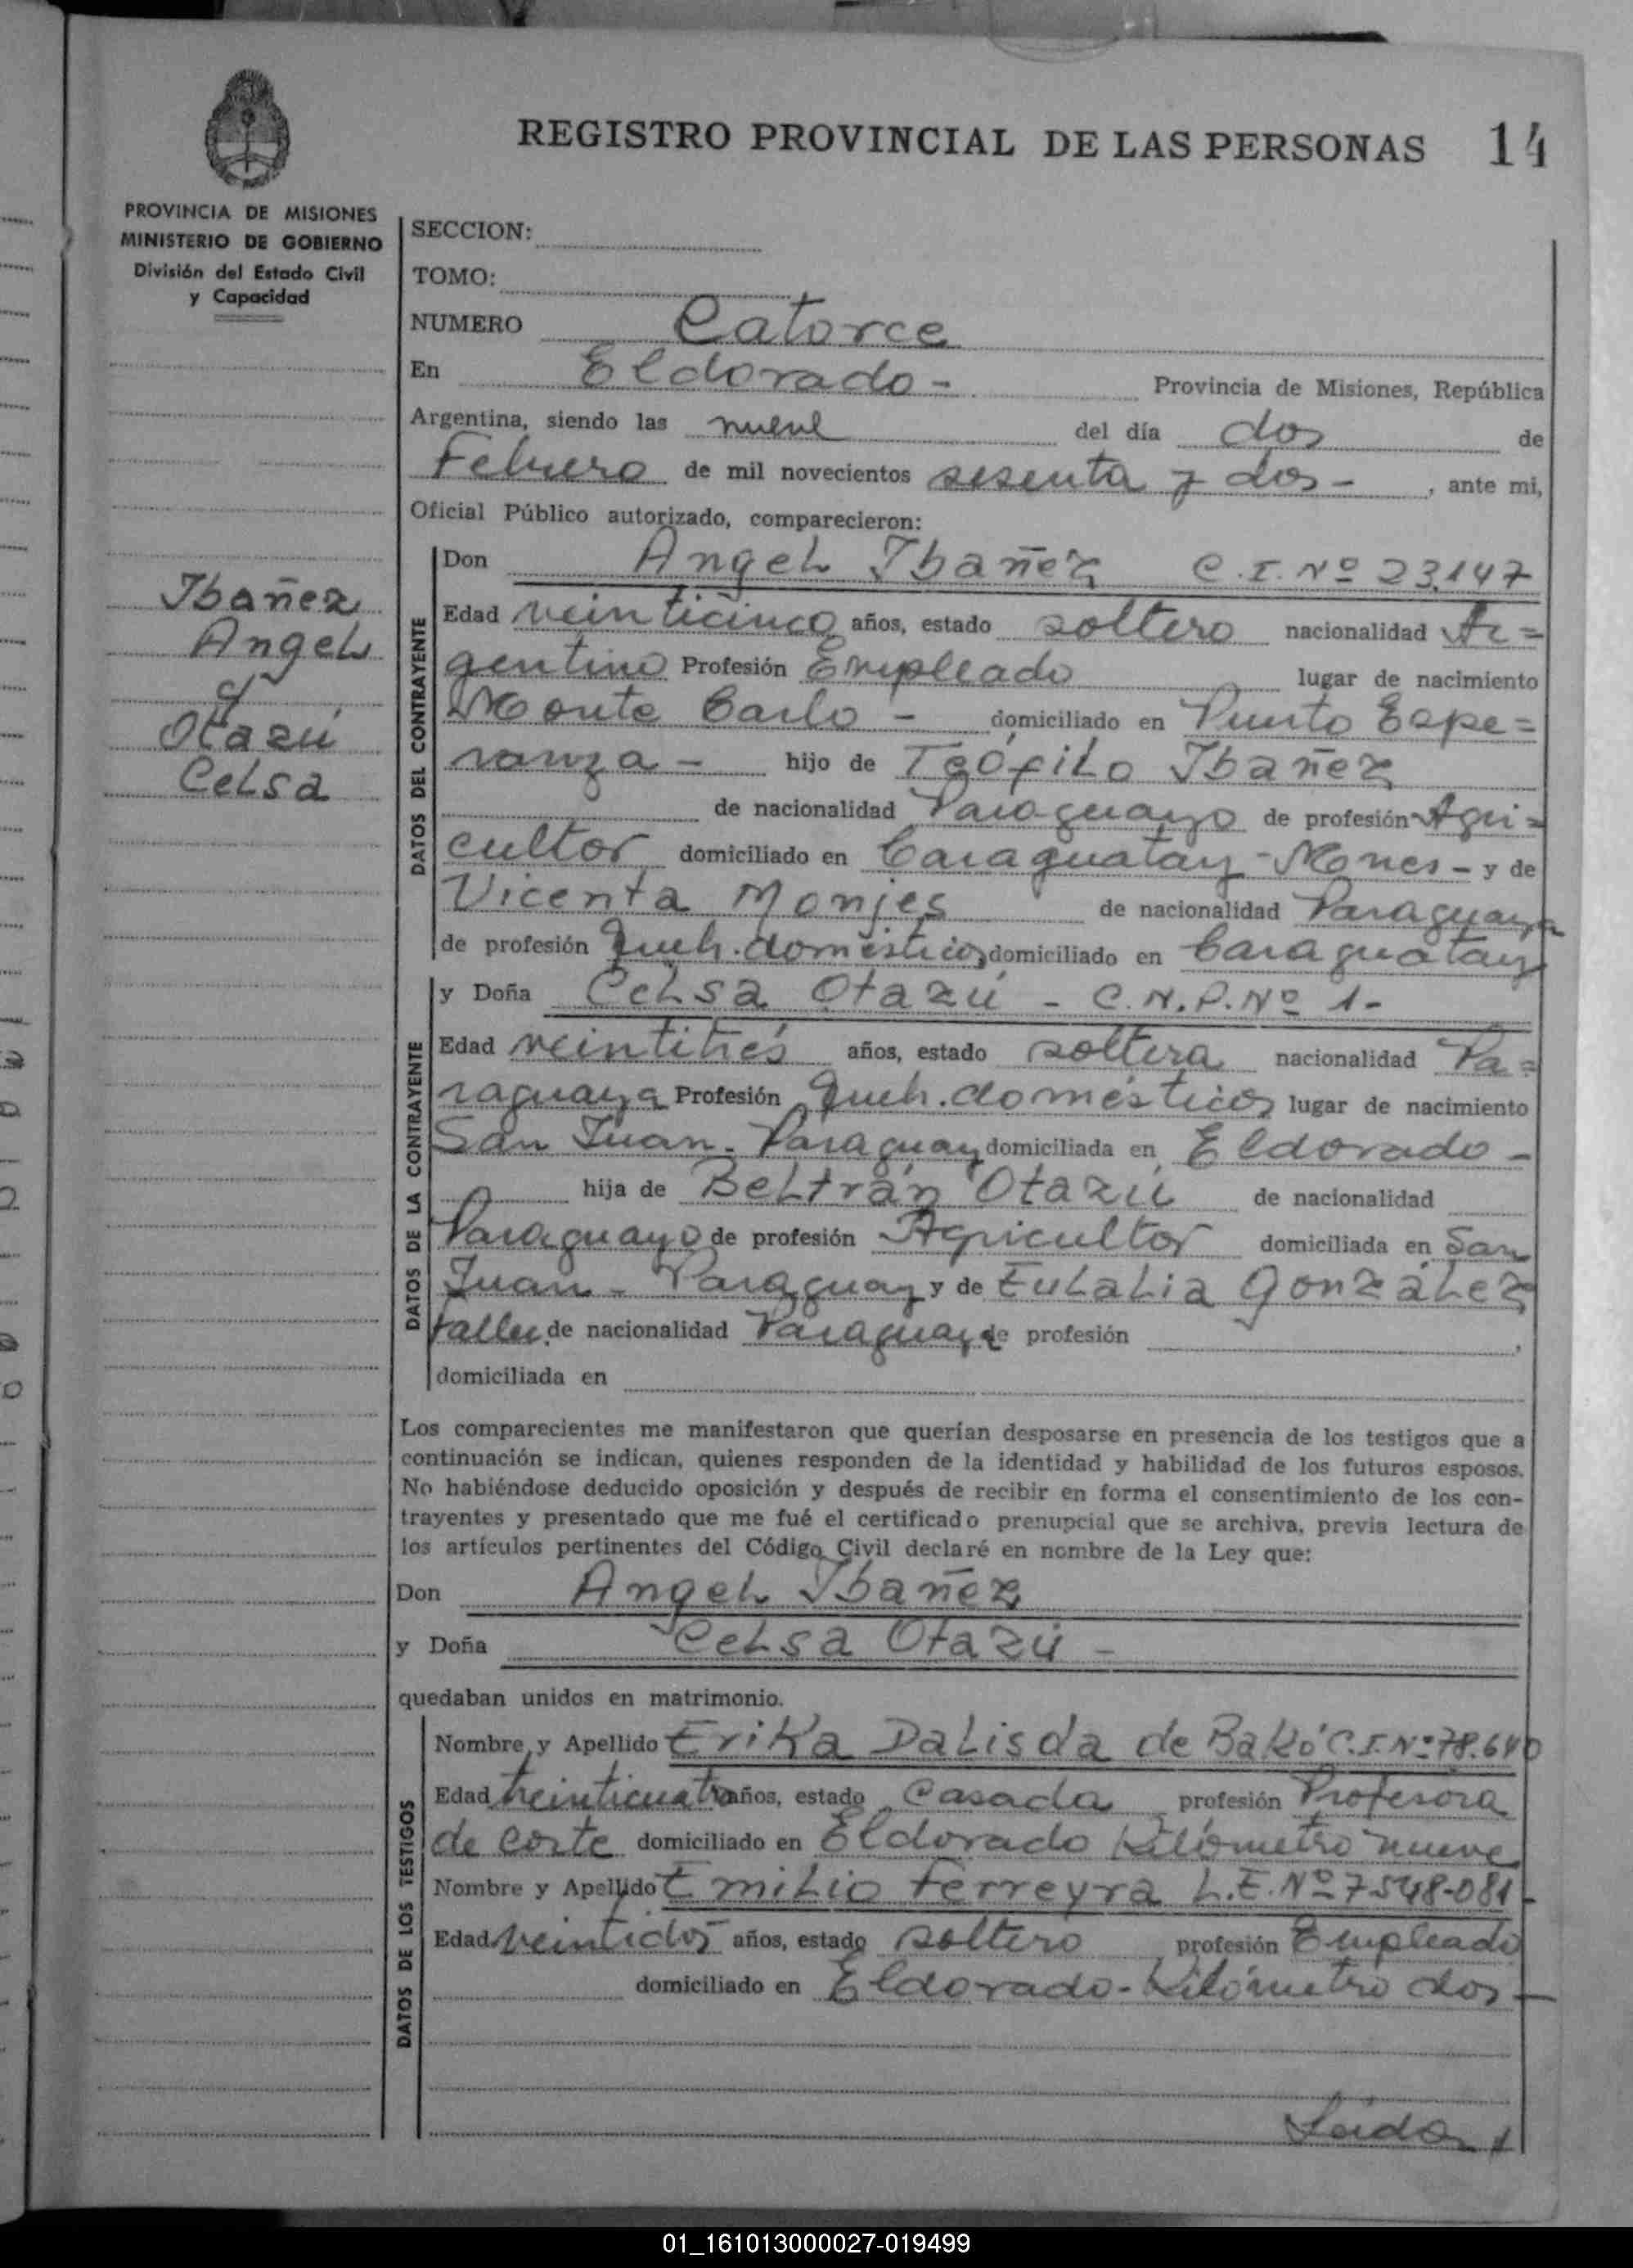 REGISTRO PROVINCIAL DE LAS PERSONAS 14
PROVINCIA DE MISIONES
MINISTERIO DE GOBIERNO
División del Estado Civil
y Capacidad
Ibañez
Angel
y
Otazú
Celsa
SECCION:
TOMO:
NUMERO Catorce
En Eldorado - Provincia de Misiones, República
Argentina, siendo las nueve del día dos de
Febrero de mil novecientos sesenta y dos - , ante mi,
Oficial Público autorizado, comparecieron:
DATOS DEL CONTRAYENTE
Don Angel Ibañez C.I. Nº 23.147
Edad veinticinco años, estado soltero nacionalidad Ar=
gentino Profesión Empleado lugar de nacimiento
Monte Carlo - domiciliado en Puerto Espe=
ranza - hijo de Teófilo Ibañez
de nacionalidad Paraguayo de profesión Agri=
cultor domiciliado en Caraguatay - Mones - y de
Vicenta Monjes de nacionalidad Paraguaya
de profesión Queh. domésticos domiciliado en Caraguatay
DATOS DE LA CONTRAYENTE
y Doña Celsa Otazú - C.N.P. Nº 1-
Edad veintitrés años, estado soltera nacionalidad Pa=
raguaya Profesión Queh. domésticos lugar de nacimiento
San Juan - Paraguay domiciliada en Eldorado -
hija de Beltrán Otazú de nacionalidad
Paraguayo de profesión Agricultor domiciliada en San
Juan - Paraguay y de Eulalia González
Fallec. de nacionalidad Paraguay de profesión
domiciliada en
Los comparecientes me manifestaron que querían desposarse en presencia de los testigos que a
continuación se indican, quienes responden de la identidad y habilidad de los futuros esposos.
No habiéndose deducido oposición y después de recibir en forma el consentimiento de los con-
trayentes y presentado que me fué el certificado prenupcial que se archiva, previa lectura de
los artículos pertinentes del Código Civil declaré en nombre de la Ley que:
Don Angel Ibañez
y Doña Celsa Otazú -
quedaban unidos en matrimonio.
DATOS DE LOS TESTIGOS
Nombre y Apellido Erika Dalisda de Bakó C.I. Nº 78.640
Edad treinticuatro años, estado casada profesión Profesora
de corte domiciliado en Eldorado Kilómetro nueve
Nombre y Apellido Emilio Ferreyra L.E. Nº 7548-081-
Edad veintidós años, estado soltero profesión Empleado
domiciliado en Eldorado - Kilómetro dos -
Leida
01_161013000027-019499